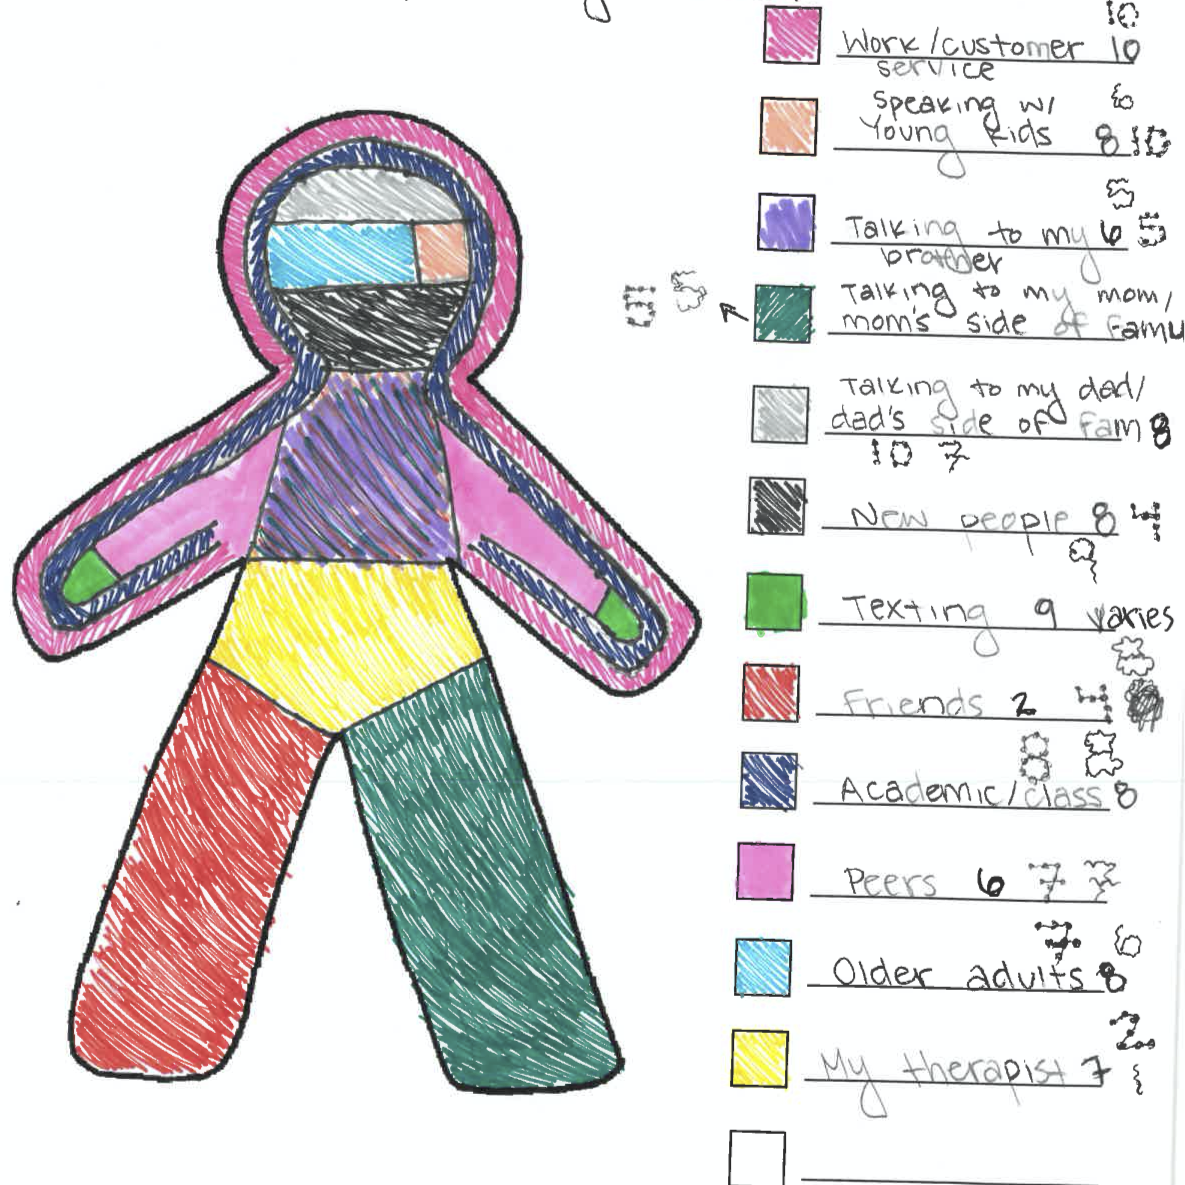 10
Work/customer 10
service
Speaking w/ 6
Young kids 8 10
5
Talking to my 6 5
brother
Talking to my mom/
5 5 mom's side of fam
Talking to my dad/
dad's side of fam 8
10 7
New people 8 4
9
Texting 9 varies
Friends 2 4
8 8
Academic/class 8
Peers 6 7 7
7 6
Older adults 8
2
My therapist 7